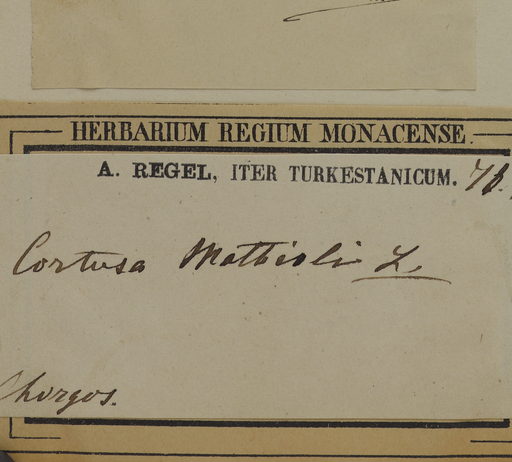 HERBARIUM REGIUM MONACENSE.
A. REGEL, ITER TURKESTANICUM. 78.
Cortusa Mathioli L.
Chorgos.